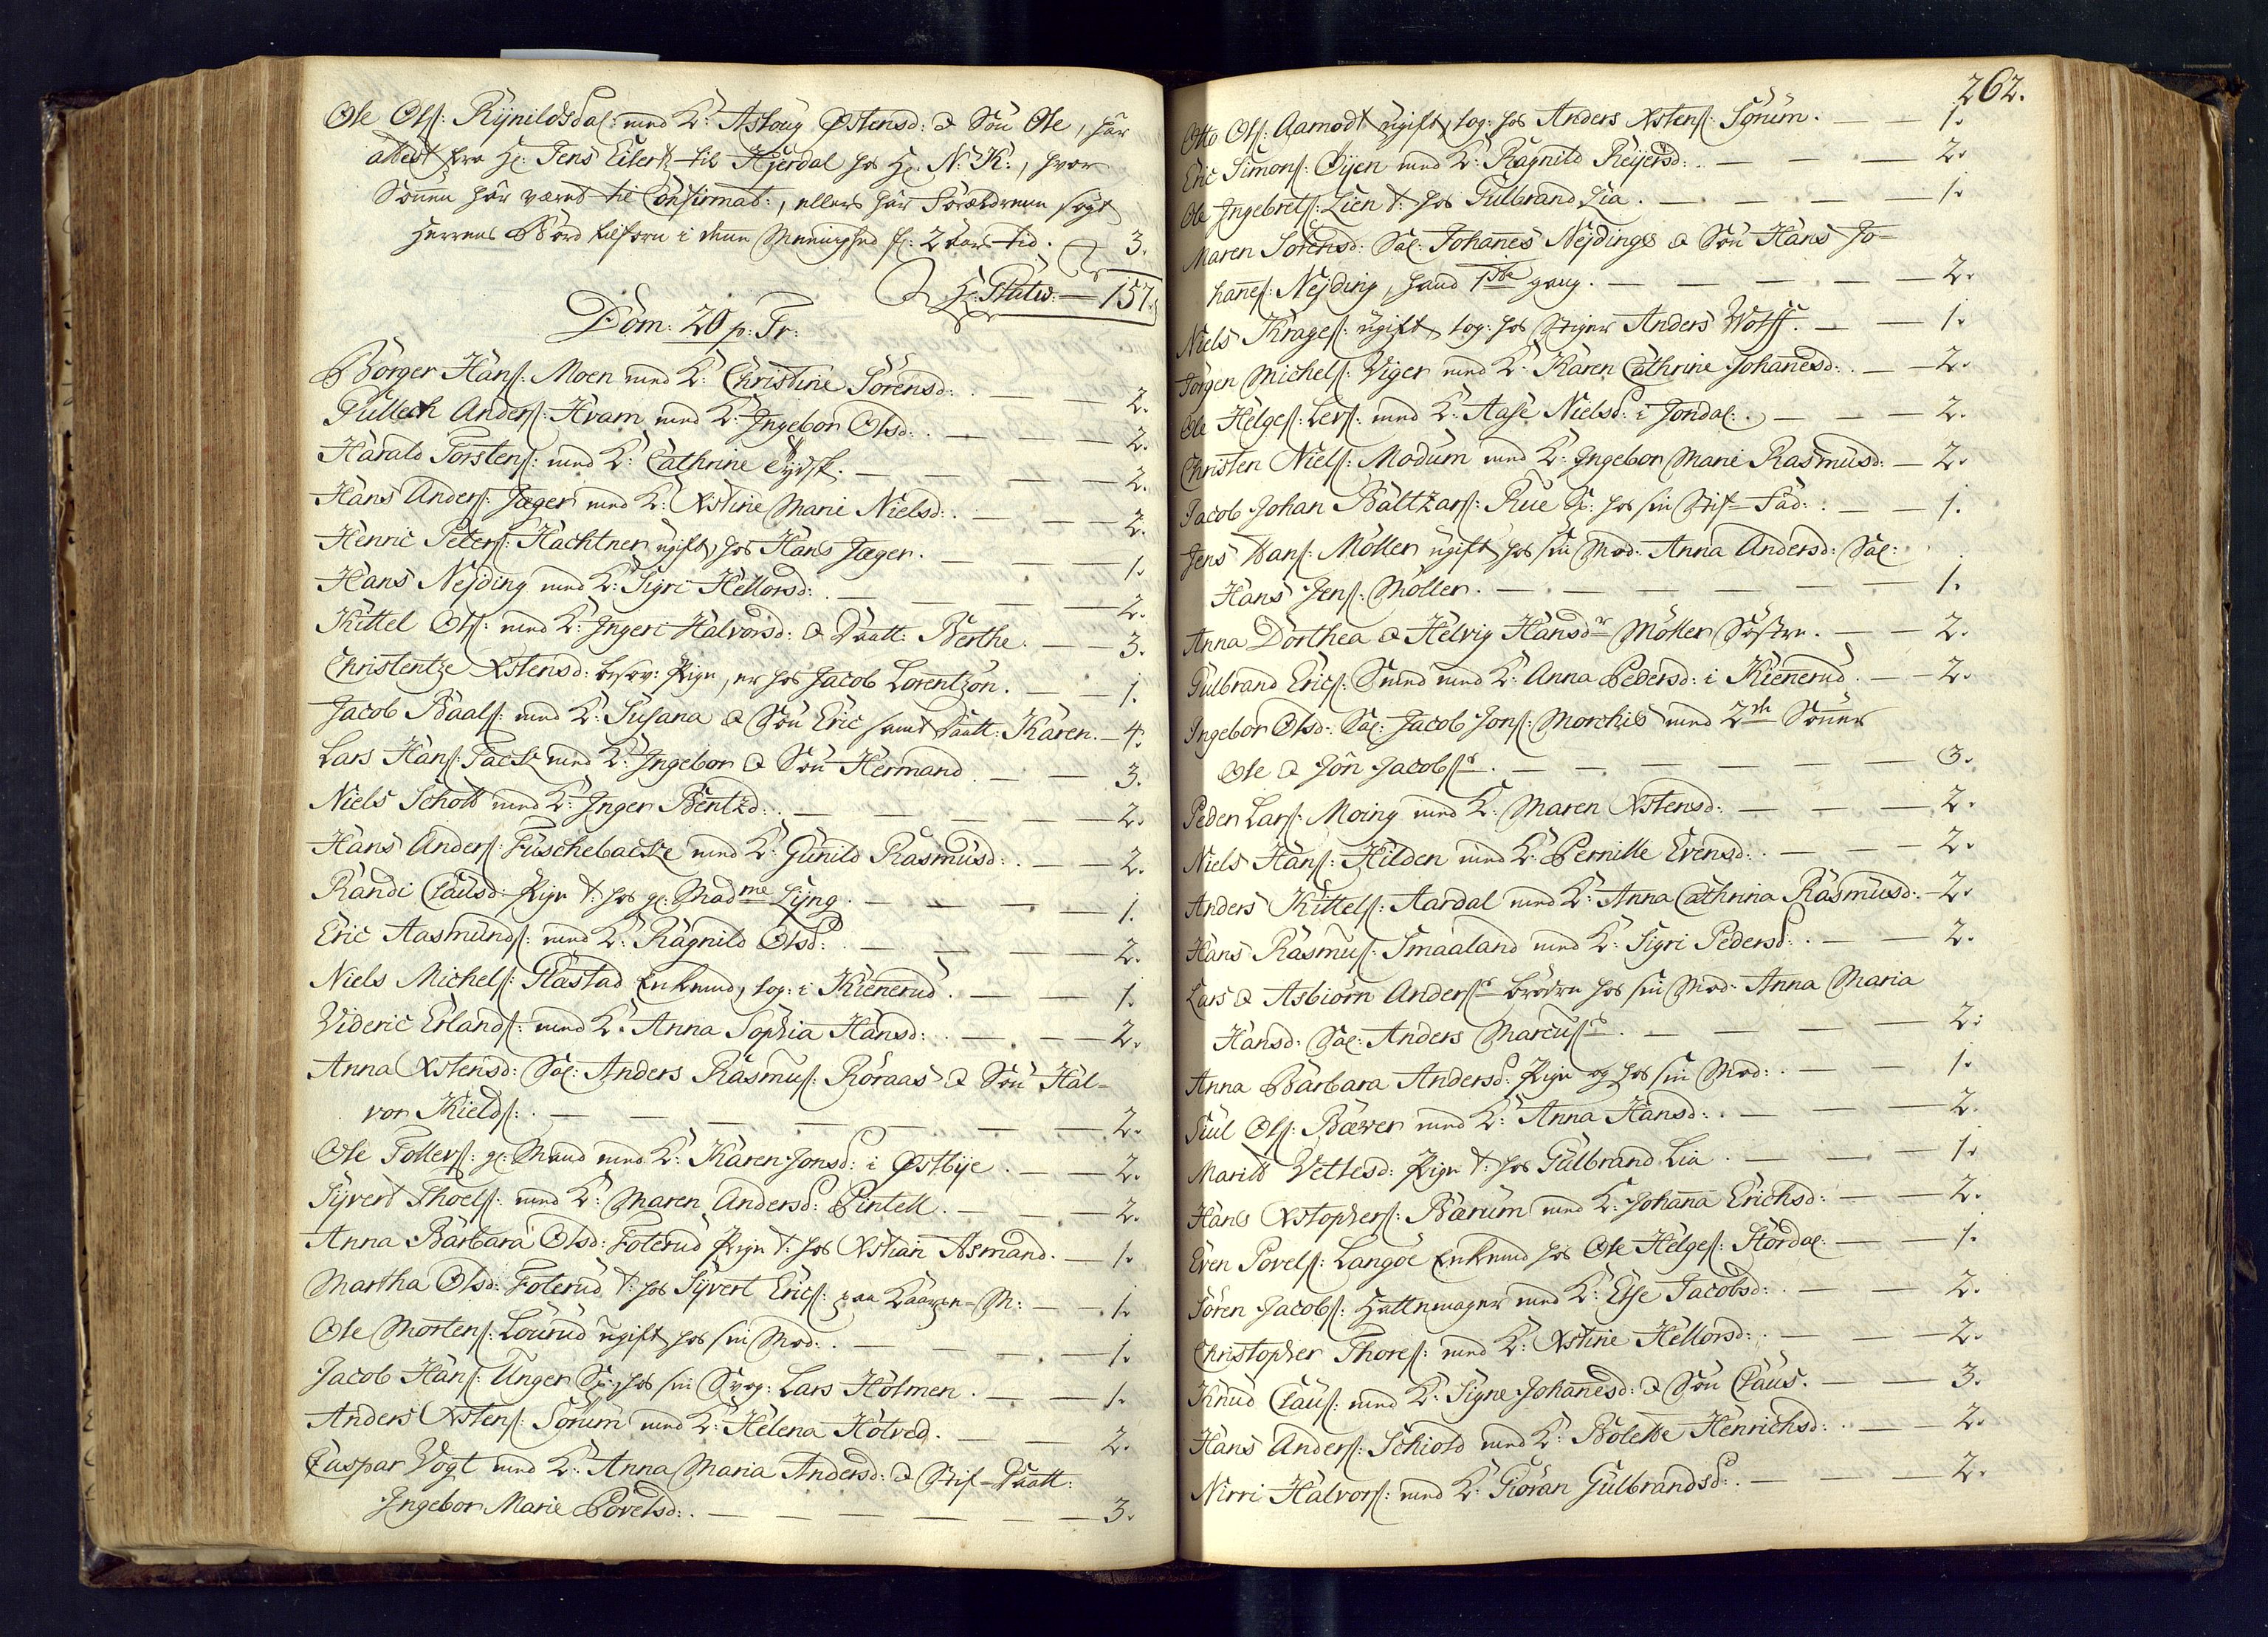 Ole Ols: Rynildsdal: med K: Asloug Østensd: & Søn Ole, har
attest fra Hr: Jens Eilert til Hjerdal hos Hr: N: K:, hvor
Sönnen har været til Confirmat:, ellers har Forældrenne søgt
Herrens Bord tilforn i denne Menighed for 2 Aars tid. 3.
157.
Dom: 20 p: Tr:
Börger Hans: Moen med K: Christine Sörensd: 2.
Gullech Anders: Hvam med K: Ingebor Olsd: 2.
Harald Torstens: med K: Cathrine Tydsk. 2.
Hans Anders: Jæger med K: Xstine Marie Nielsd: 2.
Henric Peters: Hachtner ugift, hos Hans Jæger. 1.
Hans Nejding med K: Sigri Hellorsd: 2.
Kittel Ols: med K: Ingeri Halvorsd: & Daatt: Berthe. 3.
Christentze Xstensd: besov: Pige, er hos Jacob Lorentzon. 1.
Jacob Baals: med K: Susana & Søn Eric samt Daatt: Karen. 4.
Lars Hans: Tack med K: Ingebor & Søn Hermand 3.
Niels Schott med K: Inger Bentzd: 2.
Hans Anders: Fuschebache med K: Gunild Rasmusd: 2.
Randi Clausd: Pige t: hos gl: Madme Lyng. 1.
Eric Aasmunds: med K: Ragnild Olsd: 2.
Niels Michels: Flæstad Enkemd, log: i Kiennerud. 1.
Videric Erlands: med K: Anna Sophia Hansd: 2.
Anna Xstensd: Sal: Anders Rasmus: Röraas & Søn Hal-
vor Kields: 2.
Ole Tollevs: gl: Mand med K: Karen Jonsd: i Østbije. 2.
Syvert Thoels: med K: Maren Andersd: Pintell. 2.
Anna Barbara Olsd: Foterud Pige t: hos Xstian Asmand. 1.
Martha Olsd: Foterud t: hos Syvert Erics: paa Kaaren-M: 1.
Ole Mortens: Lourud ugift hos sin Mod: 1.
Jacob Hans: Unger Sp: hos sin Svog: Lars Holmen. 1.
Anders Xstens: Sörum med K: Helena Holved. 2.
Caspar Vogt med K: Anna Maria Andersd: & Stif-Daatt:
Ingebor Marie Povelsd: 3.
262.
Otto Ols: Aamodt ugift, log: hos Anders Xstens: Sörum. 1.
Eric Simons: Øijen med K: Ragnild Reijersd: 2.
Ole Ingebrets: Lien t: hos Gulbrand Lia. 1.
Maren Sörensd: Sal: Johannes Nejdings & Søn Hans Jo-
hannes: Nejding, hand 1ste gang. 2.
Niels Krages: ugift, log: hos Stiger Anders Wolff. 1.
Jörgen Michels: Viger med K: Karen Cathrine Johannesd: 2.
Ole Helges: Lers: med K: Aase Nielsd: i Jondal: 2.
Christen Niels: Modum med K: Ingebor Marie Rasmusd: 2.
Jacob Johan Baltzars: Rue Sp: hos sin Stif-Fad: 1.
Jens Hans: Möller ugift, hos sin Mod: Anna Andersd: Sal:
Hans Jens: Möller. 1.
Anna Dorthea & Helvig Hansdr Möller Søstre. 2.
Gulbrand Erics: Smed med K: Anna Pedersd: i Kiennerud. 2.
Ingebor Olsd: Sal: Jacob Jons: Morchis med 2de Sönner
Ole & Jon Jacobsr. 3.
Peder Lars: Moing med K: Maren Xstensd: 2.
Niels Hans: Hilden med K: Pernille Evensd: 2.
Anders Kittels: Aardal med K: Anna Cathrina Rasmusd: 2.
Hans Rasmus: Smaaland med K: Sigri Pedersd: 2.
Lars & Asbiörn Andersr brødre hos sin Mod: Anna Maria
Hansd: Sal: Anders Marcuss 2.
Anna Barbara Andersd: Pige og hos sin Mod: 1.
Siul Ols: Bæver med K: Anna Hansd: 2.
Maritt Vettesd: Pige t: hos Gulbrand Lia. 1.
Hans Xstophers: Bærum med K: Johanna Erichsd: 2.
Even Povels: Langöe Enkemd hos Ole Helges: Hördal: 1.
Sören Jacobs: Hattemager med K: Else Jacobsd: 2.
Christopher Thores: med K: Xstine Hellorsd: 2.
Knud Claus: med K: Signe Johannesd: & Søn Claus. 3.
Hans Anders: Schiold med K: Bolette Henrichsd: 2.
Nirri Halvors: med K: Giöran Gulbrandsd: 2.